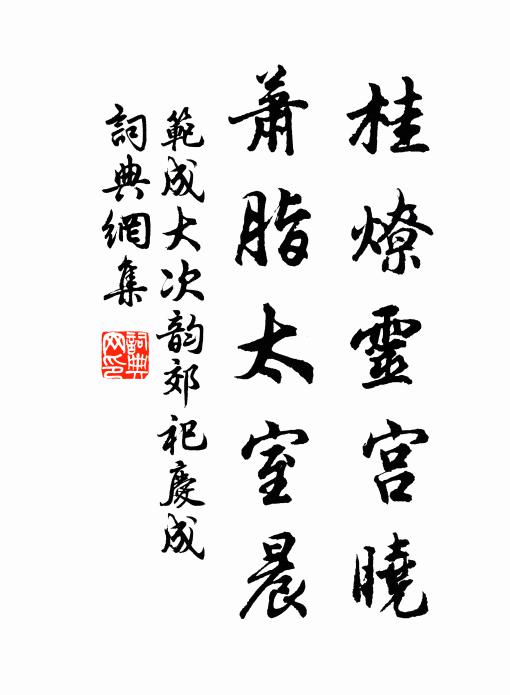 桂燎靈宫曉
蕭脂太室晨
範成大次韵郊祀慶成
詞典網集
詞典网印